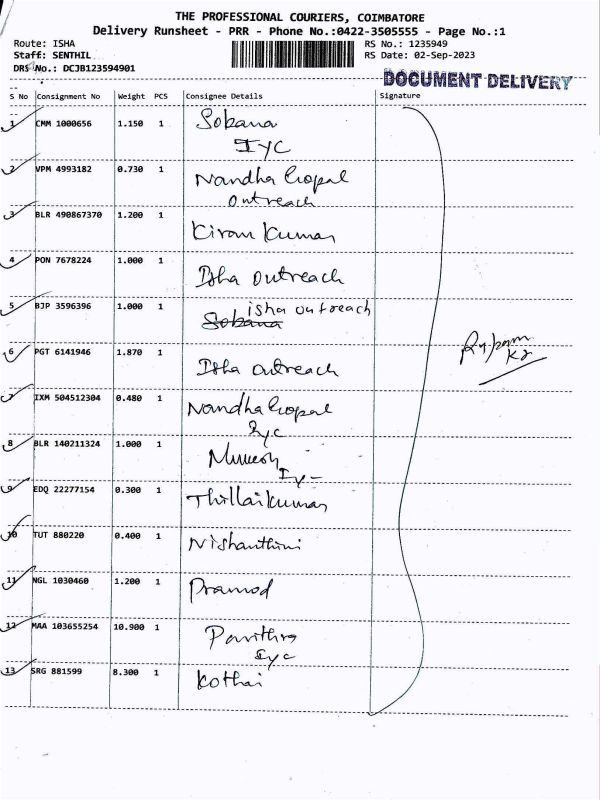 THE PROFESSIONAL COURIERS, COIMBATORE
Delivery Runsheet - PRR - Phone No.:0422-3505555 - Page No.:1
Route: ISHA
RS No.: 1235949
Staff: SENTHIL
RS Date: 02-Sep-2023
DRS No.: DCJB123594901
DOCUMENT DELIVERY
S No Consignment No Weight PCS Consignee Details Signature
1 CMM 1000656 1.150 1 Sobana
IYC
2 VPM 4993182 0.730 1 Nandha Gopal
outreach
3 BLR 490867370 1.200 1 Kiran Kumar
4 PON 7678224 1.000 1 Isha outreach
5 BJP 3596396 1.000 1 isha outreach
Sobana
6 PGT 6141946 1.870 1 Isha outreach
7 IXM 504512304 0.480 1 Nandha Gopal
Iyc
8 BLR 140211324 1.000 1
9 EDQ 22277154 0.300 1 Thillaikumar
10 TUT 880220 0.400 1 Nishanthini
11 NGL 1030460 1.200 1 Pramod
12 MAA 103655254 10.900 1 Pavithra
Iyc
13 SRG 881599 8.300 1 Kothai